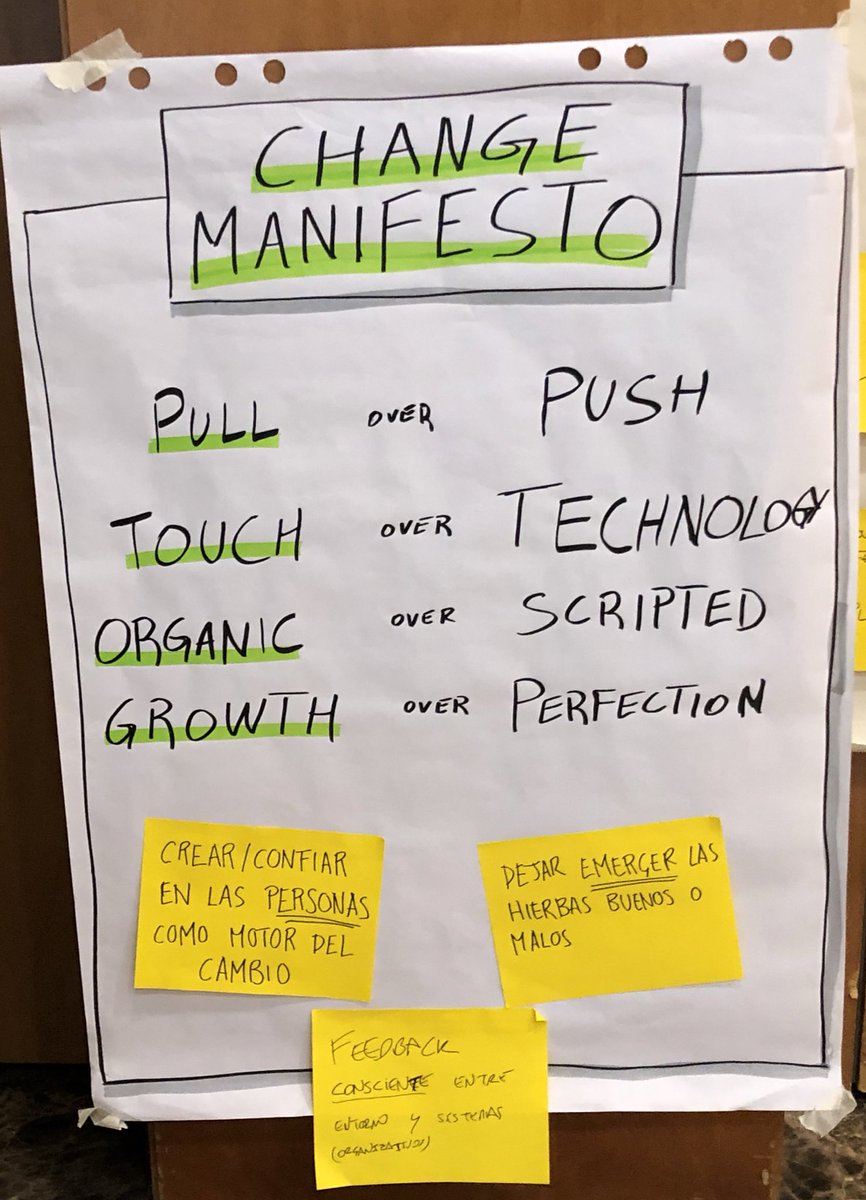 CHANGE
MANIFESTO
PULL OVER PUSH
TOUCH OVER TECHNOLOGY
ORGANIC OVER SCRIPTED
GROWTH OVER PERFECTION
CREAR/CONFIAR
EN LAS PERSONAS
COMO MOTOR DEL
CAMBIO
DEJAR EMERGER LAS
HIERBAS BUENOS O
MALOS
FEEDBACK
CONSCIENTE ENTRE
ENTORNO Y SISTEMAS